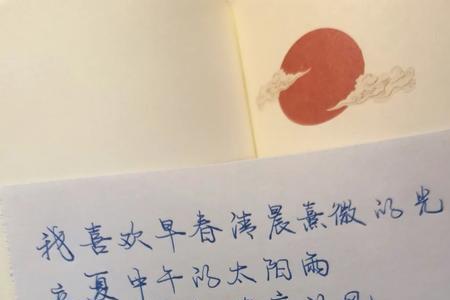 我喜欢早春清晨熹微的光
立夏中午的太阳雨